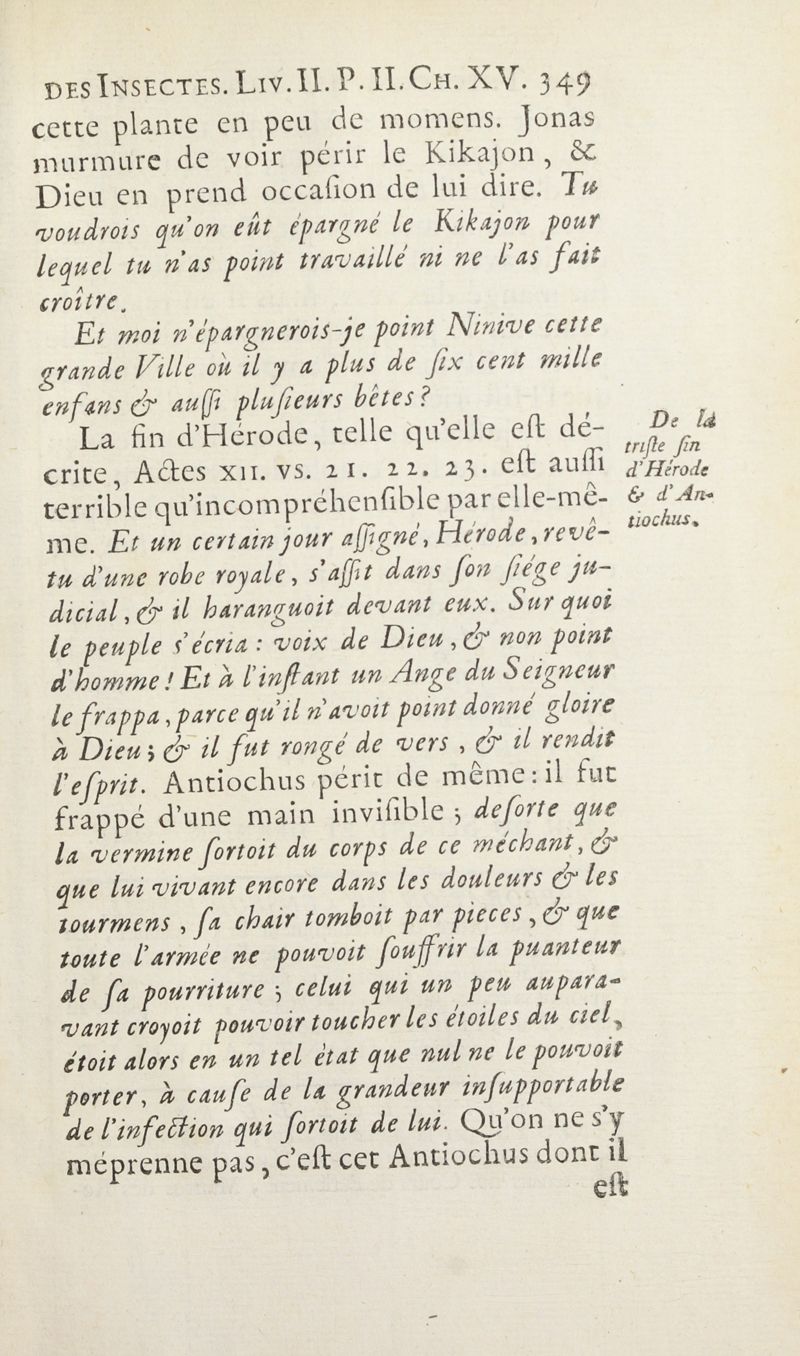 DES INSECTES. LIV. II. P. II. CH. XV. 349
cette plante en peu de momens. Jonas
murmure de voir périr le Kikajon, &
Dieu en prend occaſion de lui dire. Tu
voudrois qu'on eût épargné le Kikajon pour
lequel tu n'as point travaillé ni ne l'as fait
croître.
Et moi n'épargnerois-je point Ninive cette
grande Ville où il y a plus de ſix cent mille
enfans & auſſi pluſieurs bêtes?
La fin d'Hérode, telle qu'elle eſt dé-
crite, Actes XII. VS. 21. 22. 23. eſt auſſi
terrible qu'incompréhenſible par elle-mê-
me. Et un certain jour aſſigné, Hérode, revê-
tu d'une robe royale, s'aſſit dans ſon ſiége ju-
dicial, & il haranguoit devant eux. Sur quoi
le peuple s'écria: voix de Dieu, & non point
d'homme! Et à l'inſtant un Ange du Seigneur
le frappa, parce qu'il n'avoit point donné gloire
à Dieu; & il fut rongé de vers, & il rendit
l'eſprit. Antiochus périt de même: il fut
frappé d'une main inviſible; deſorte que
la vermine ſortoit du corps de ce méchant, &
que lui vivant encore dans les douleurs & les
tourmens, ſa chair tomboit par pieces, & que
toute l'armée ne pouvoit ſouffrir la puanteur
de ſa pourriture; celui qui un peu aupara-
vant croyoit pouvoir toucher les étoiles du ciel,
étoit alors en un tel état que nul ne le pouvoit
porter, à cauſe de la grandeur inſupportable
de l'infection qui ſortoit de lui. Qu'on ne s'y
méprenne pas, c'eſt cet Antiochus dont il
eſt
De la
triſte fin
d'Hérode
& d'An-
tiochus.